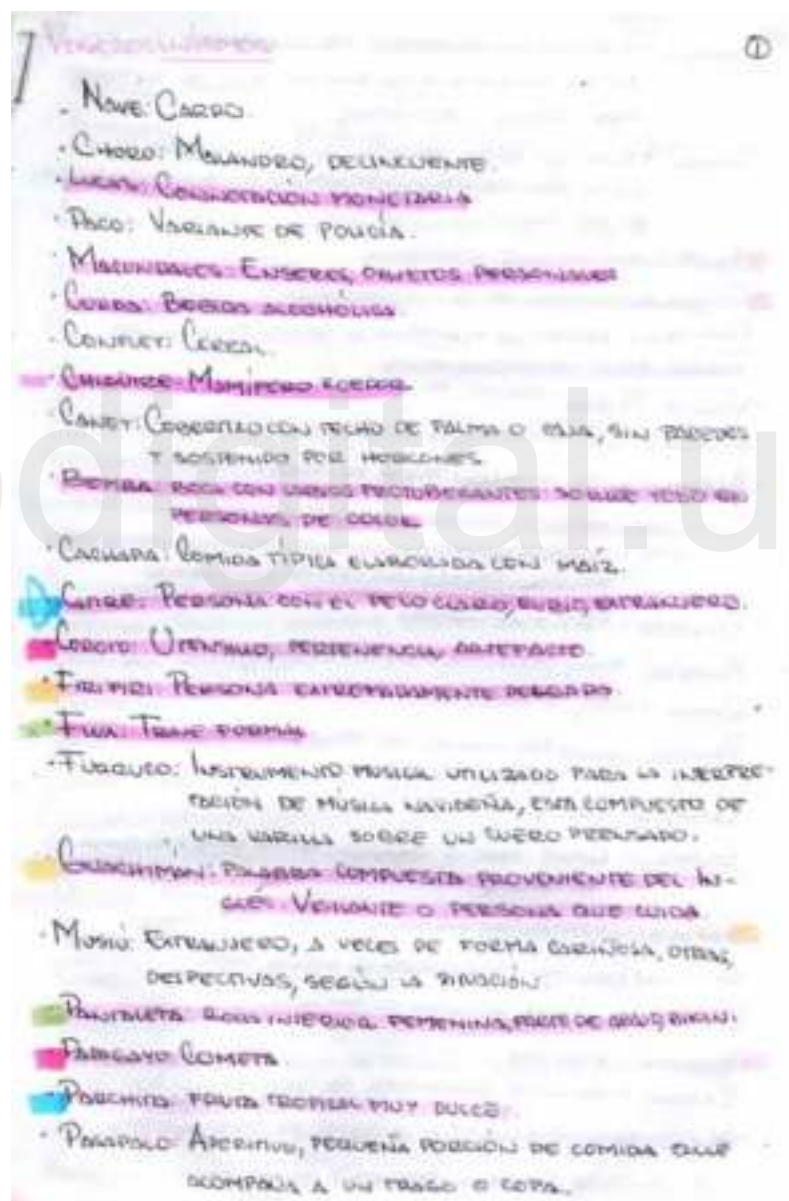 VENEZOLANISMOS
①
· NAVE: CARRO.
· CHORO: MALANDRO, DELINCUENTE.
· LUCAS: CONNOTACIÓN MONETARIA
· PACO: VARIANTE DE POLICÍA.
· MACUNDALES: ENSERES, OBJETOS PERSONALES
· CURDA: BEBIDA ALCOHÓLICA.
· CONFLEY: CEREAL.
· CHIGÜIRE: MAMÍFERO ROEDOR.
· CANEY: COBERTIZO CON TECHO DE PALMA O PAJA, SIN PAREDES
Y SOSTENIDO POR HORCONES.
· BEMBA: BOCA CON LABIOS PROTUBERANTES SOBRE TODO EN
PERSONAS DE COLOR.
· CACHAPA: COMIDA TÍPICA ELABORADA CON MAÍZ.
· CATIRE: PERSONA CON EL PELO CLARO, RUBIO, EXTRANJERO.
· COROTO: UTENSILIO, PERTENENCIA, ARTEFACTO.
· FIRIFIRI: PERSONA EXTREMADAMENTE DELGADA.
· FLUX: TRAJE FORMAL
· FURRUCO: INSTRUMENTO MUSICAL UTILIZADO PARA LA INERPRE-
TACIÓN DE MÚSICA NAVIDEÑA, ESTA COMPUESTO DE
UNA VARILLA SOBRE UN CUERO PRENSADO.
· GUACHIMÁN: PALABRA COMPUESTA PROVENIENTE DEL IN-
GLÉS. VIGILANTE O PERSONA QUE CUIDA.
· MUSIÚ: EXTRANJERO, A VECES DE FORMA CARIÑOSA, OTRAS,
DESPECTIVAS, SEGÚN LA SITUACIÓN.
· PANTALETA: ROPA INTERIOR FEMENINA, PARTE DE BIKINI.
· PAPAGAYO: COMETA.
· PARCHITA: FRUTA TROPICAL MUY DULCE.
· PASAPALO: APERITIVO, PEQUEÑA PORCIÓN DE COMIDA QUE
ACOMPAÑA A UN TRAGO O COPA.
digital.u